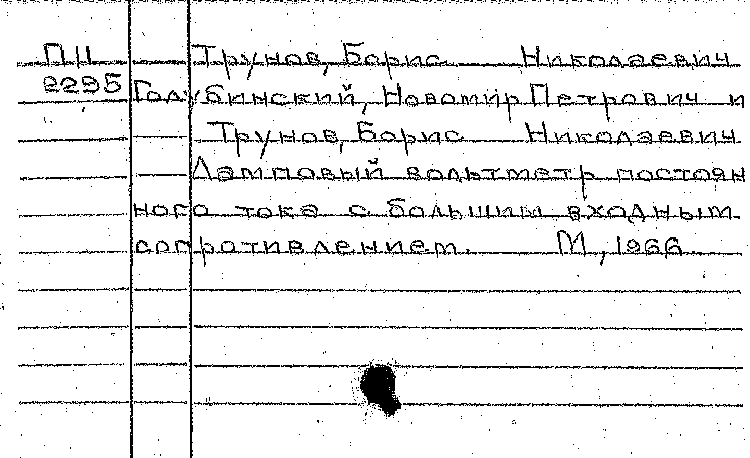 ПН Трунов, Борис Николаевич
2295 Голубинский, Новомир Петрович и
Трунов, Борис Николаевич
Ламповый вольтметр постоян
ного тока с большим входным
сопротивлением. М, 1966